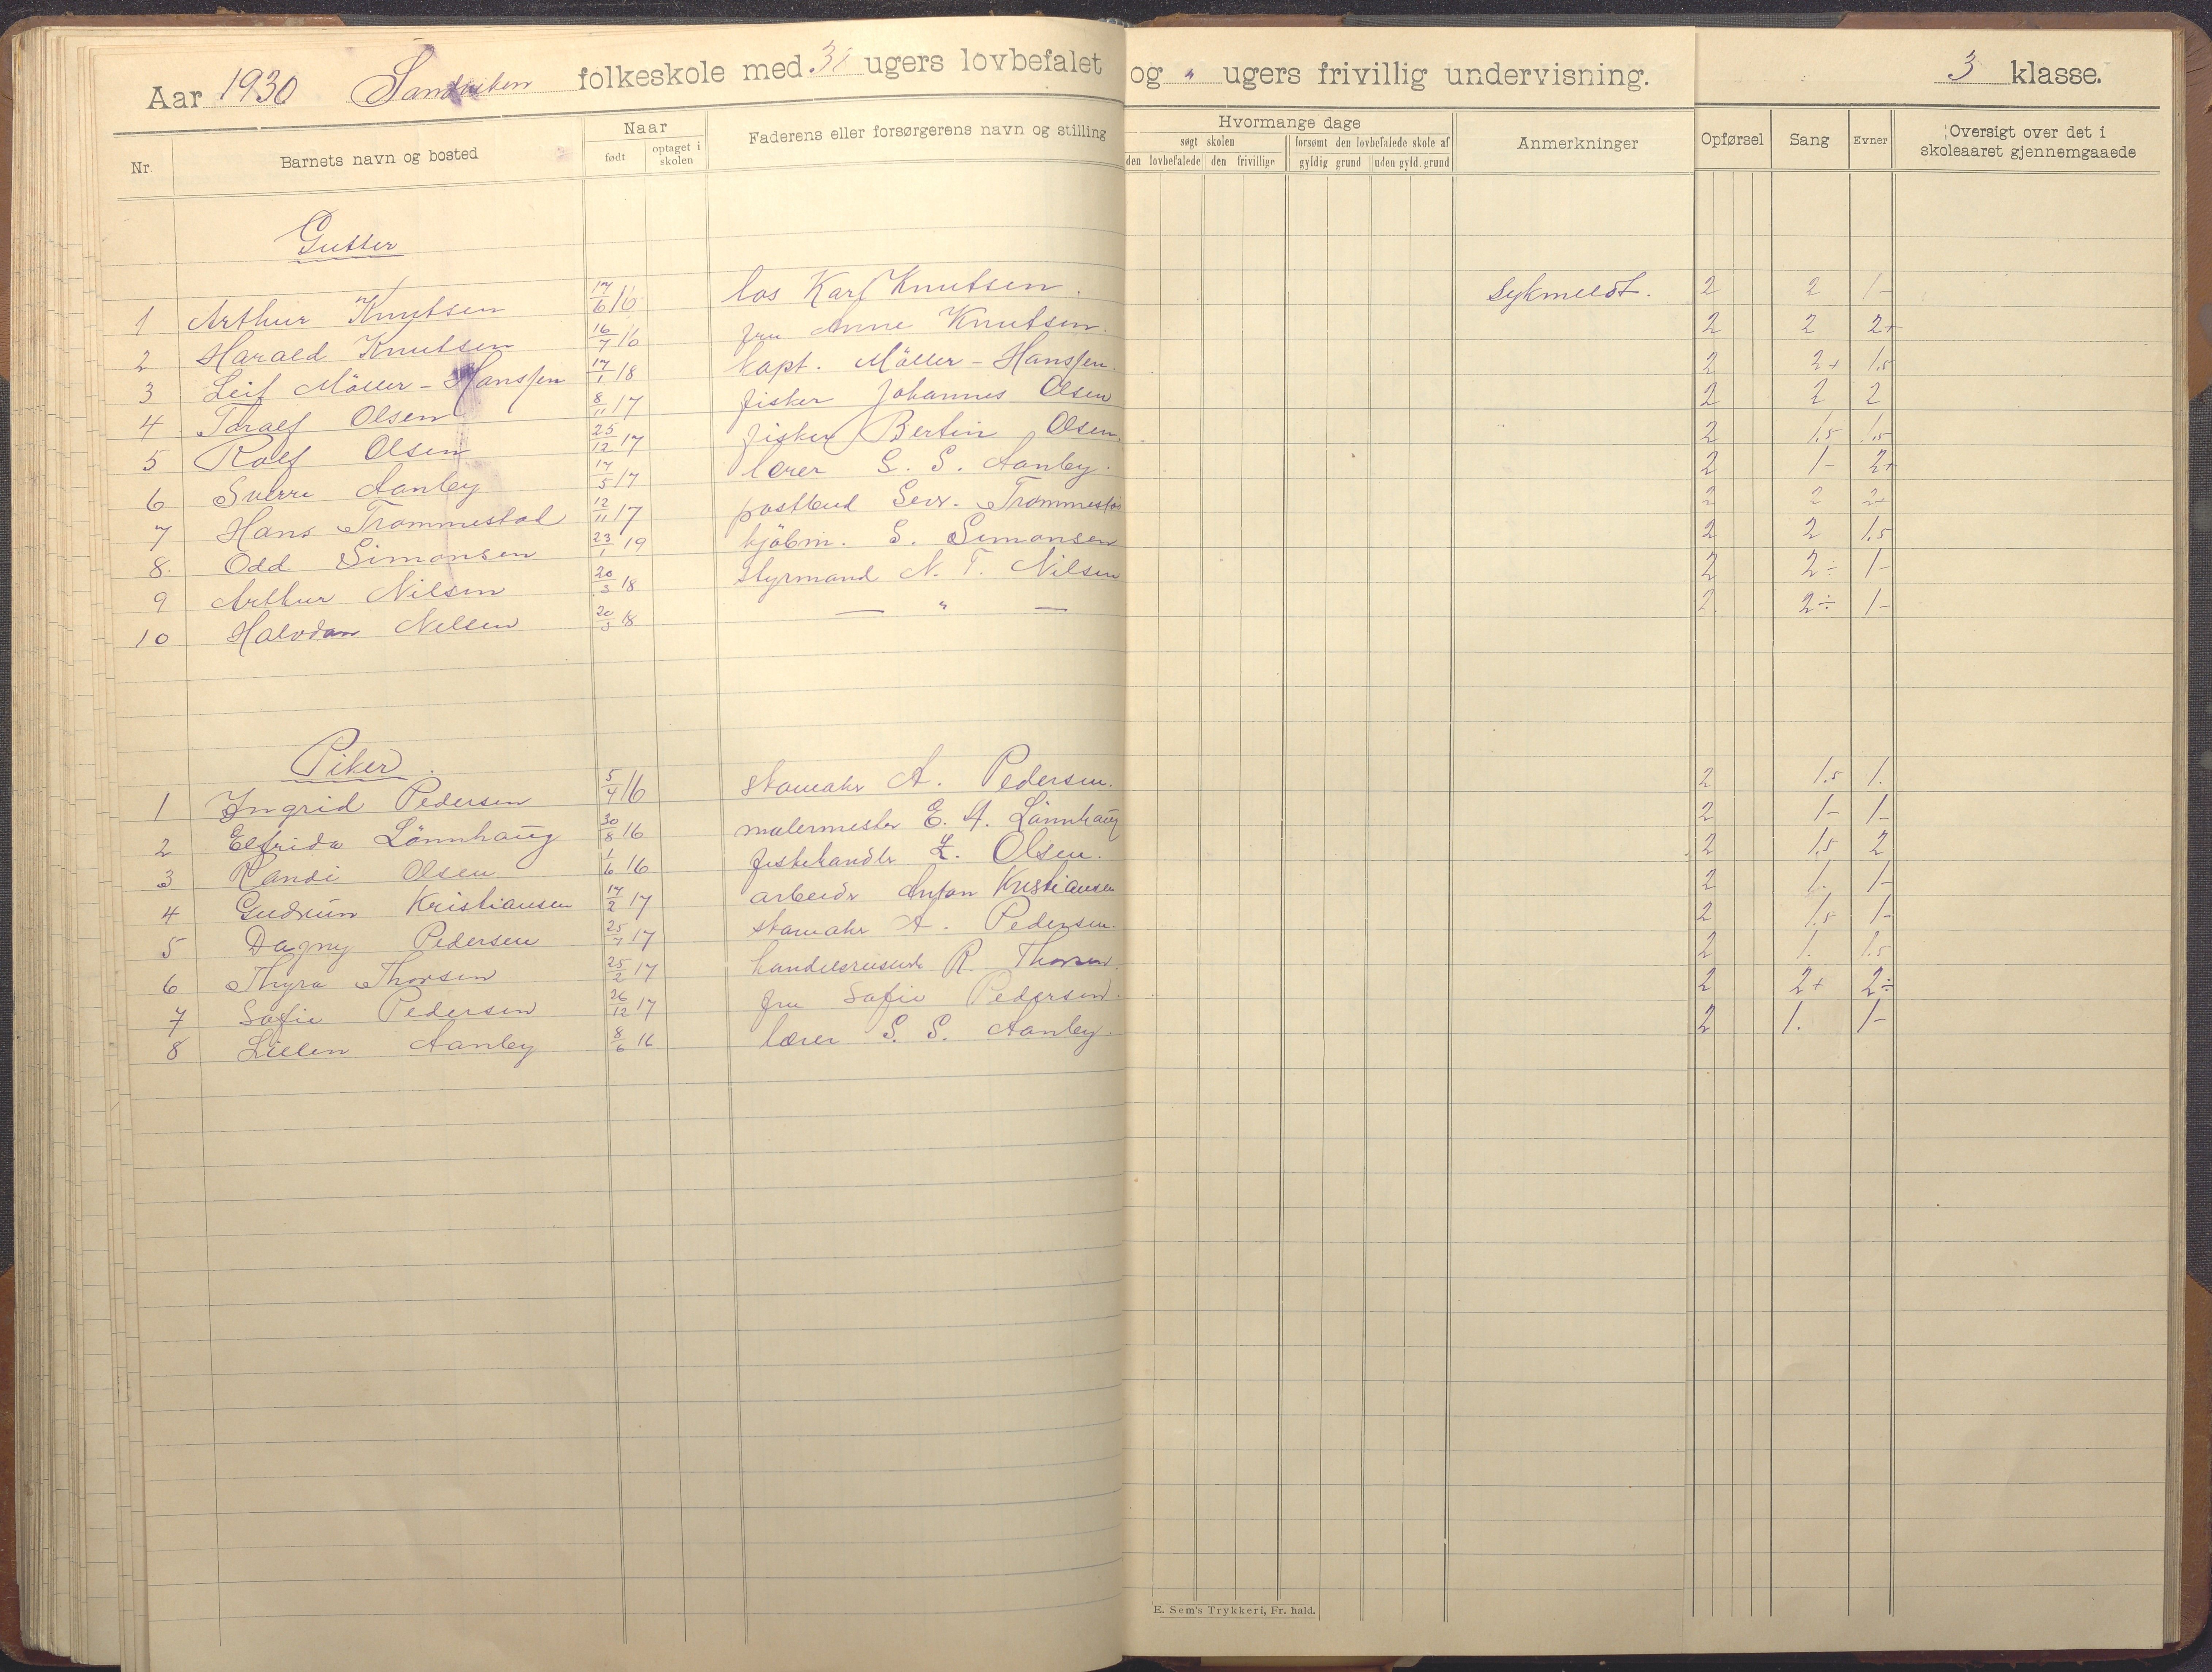 Aar 1930 Sandviken folkeskole med 31 ugers lovbefalet og " ugers frivillig undervisning. 3 klasse.
Nr. Barnets navn og bosted Naar født optaget i skolen Faderens eller forsørgerens navn og stilling Hvormange dage søgt skolen den lovbefalede den frivillige forsømt den lovbefalede skole af gyldig grund uden gyld. grund Anmerkninger Opførsel Sang Evner Oversigt over det i skoleaaret gjennemgaaede
Gutter
1 Arthur Knutsen 17/6 16 los Karl Knutsen. Sykmeldt. 2 2 1-
2 Harald Knutsen 16/7 16 fru Anne Knutsen. 2 2 2+
3 Leif Möller-Hanssen 17/1 18 kapt. Möller-Hanssen. 2 2+ 1.5
4 Toralf Olsen 8/11 17 fisker Johannes Olsen 2 2 2
5 Rolf Olsen 25/12 17 fisker Bertin Olsen. 2 1.5 1.5
6 Sverre Aanby 17/5 17 lærer S. S. Aanby. 2 1- 2+
7 Hans Trommestad 12/11 17 postbud Sev. Trommestad 2 2 2+
8 Odd Simonsen 23/1 19 kjöbm. S. Simonsen 2 2 1.5
9 Arthur Nilsen 20/3 18 styrmand N. T. Nilsen 2 2- 1-
10 Halvdan Nilsen 20/3 18 — " — 2. 2÷ 1-
Piker.
1 Ingrid Pedersen 5/4 16 A. Pedersen. 2 1.5 1.
2 Elfrida Lönnhaug 30/8 16 malermester E. A. Lönnhaug 2 1- 1-
3 Randi Olsen 1/6 16 fiskehandler Olsen. 2 1.5 2
4 Gudrun Kristiansen 14/2 17 arbeider Anton Kristiansen 2 1. 1-
5 Dagny Pedersen 25/7 17 A. Pedersen. 2 1.5 1-
6 Thyra Thorsen 25/2 17 handelsreisende R. Thorsen. 2 1. 1.5
7 Sofie Pedersen 26/12 17 fru Sofie Pedersen. 2 2+ 2÷
8 Lillen Aanby 8/6 16 lærer S. S. Aanby. 2 1. 1-
E. Sem's Trykkeri, Fr. hald.